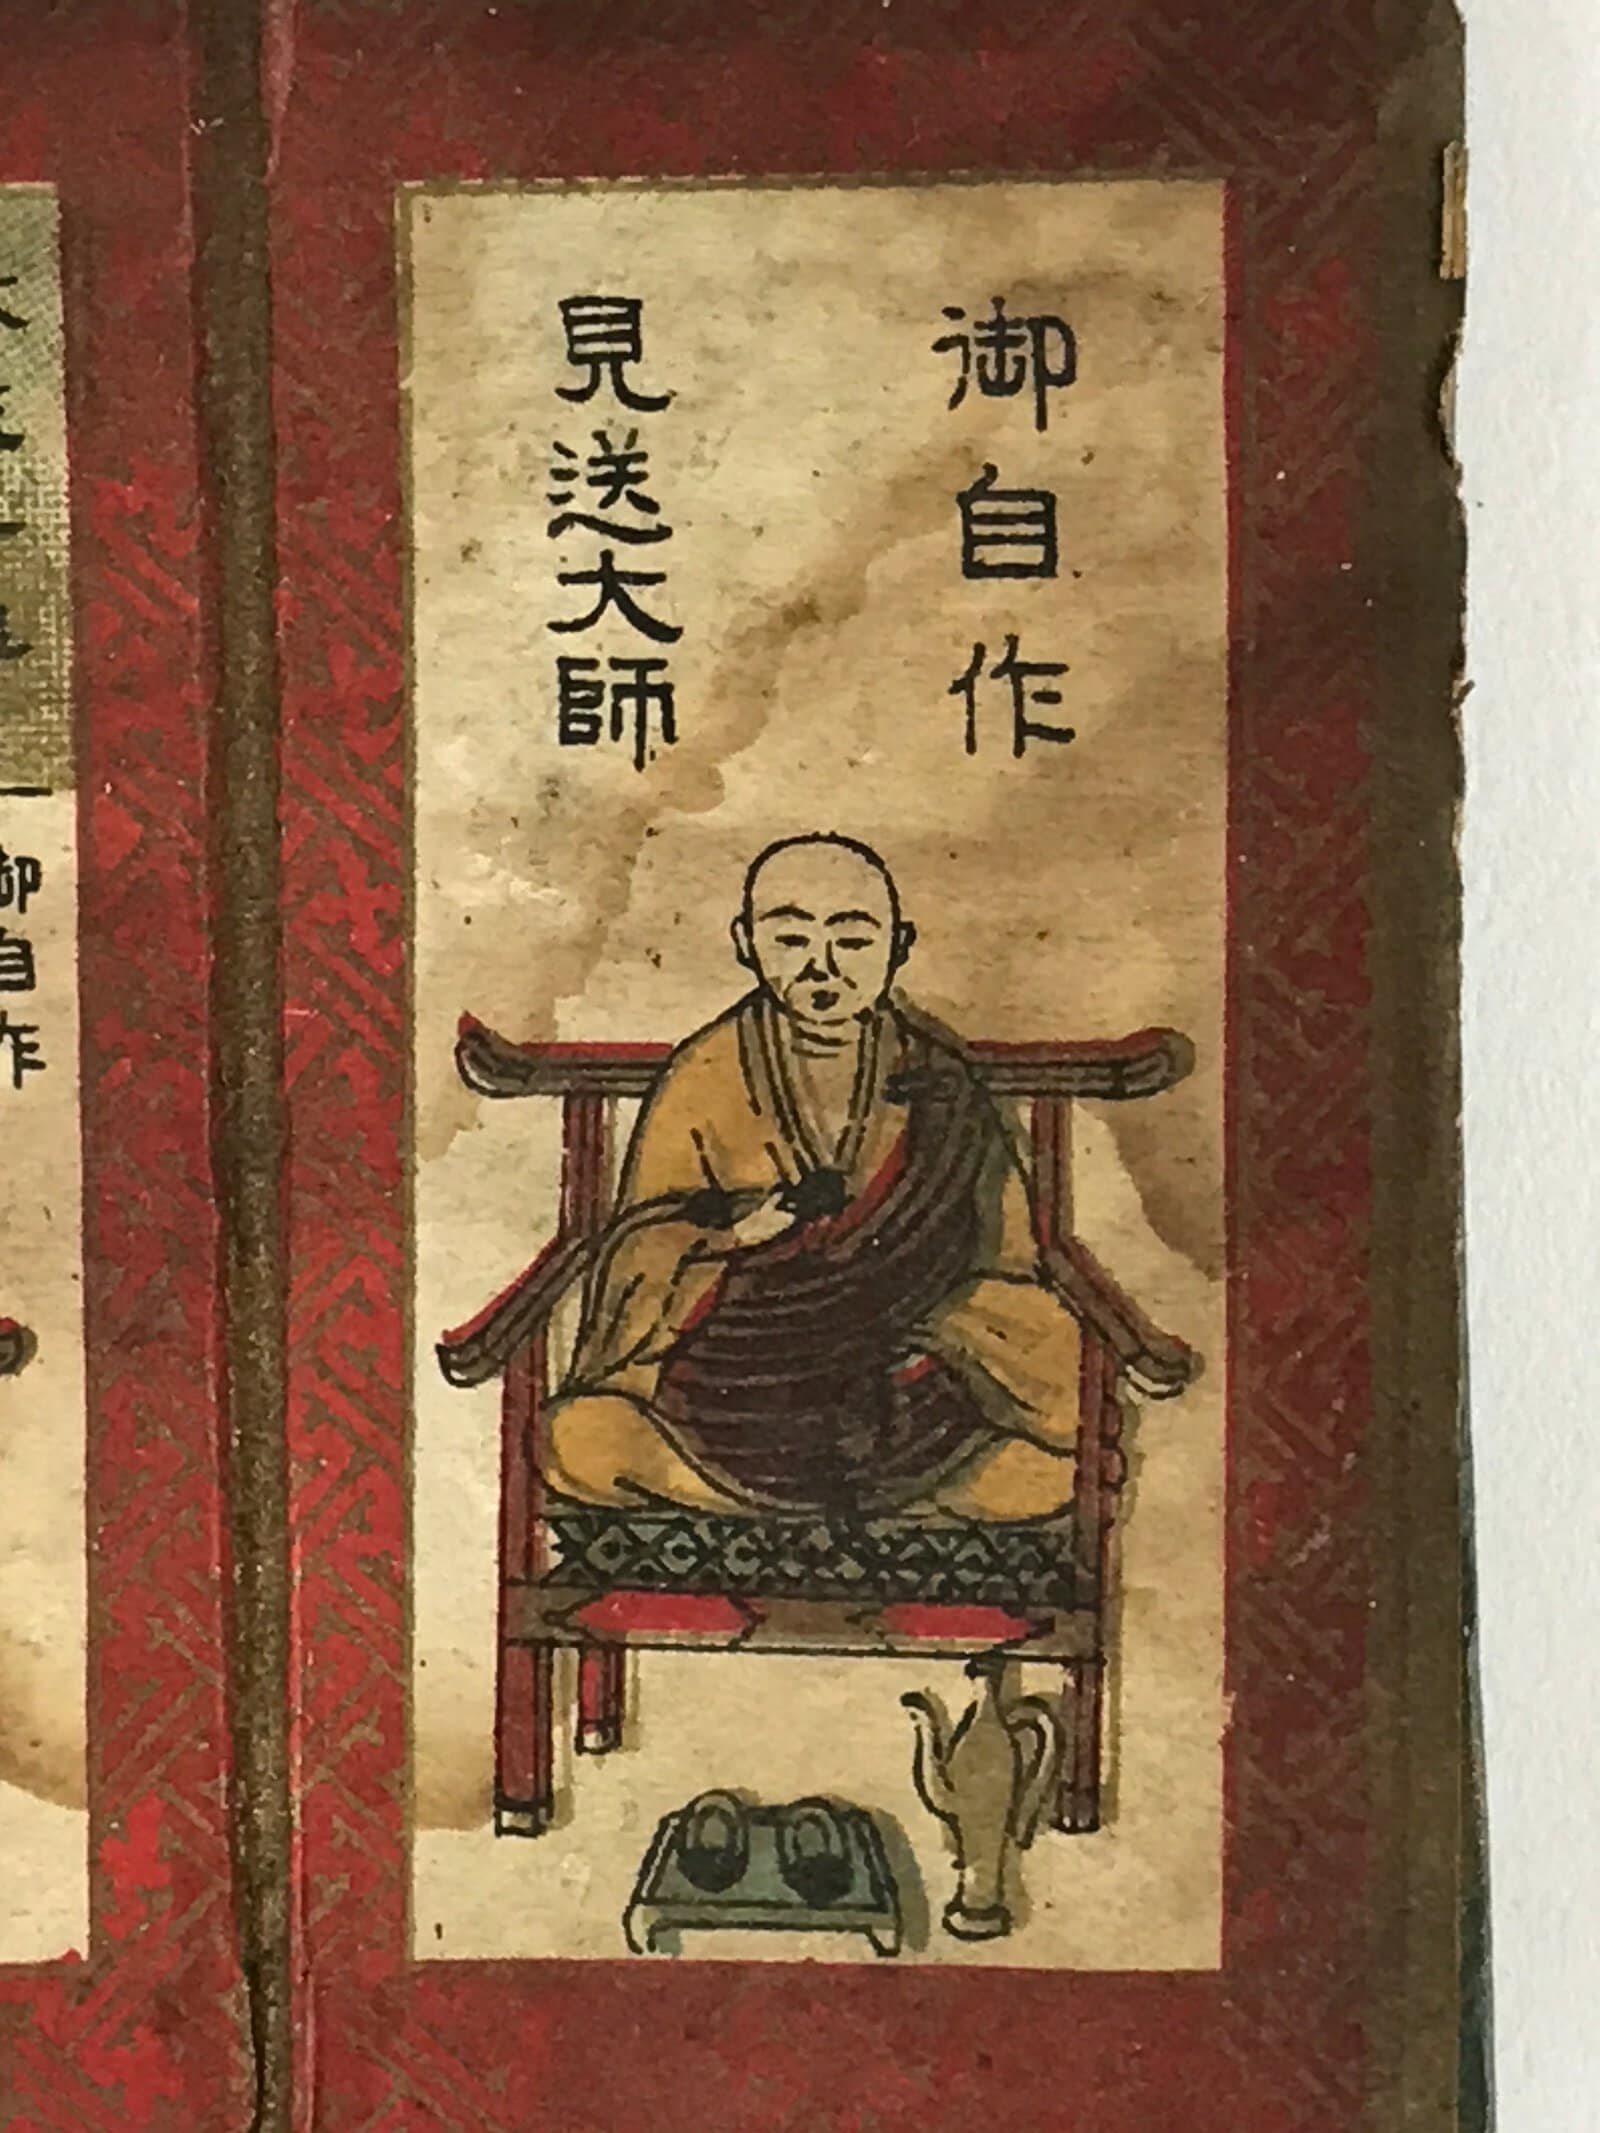 御自作
見送大師
御自作